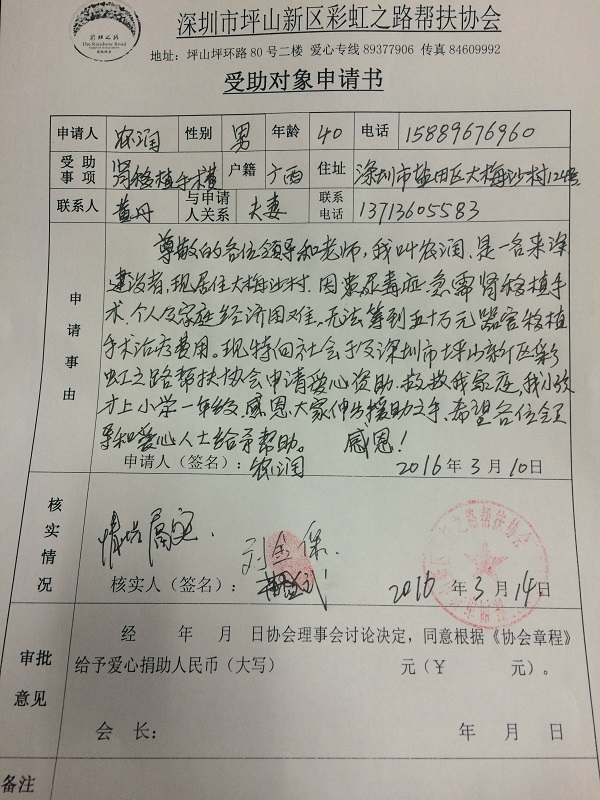 彩虹之路
The Rainbow Road
深圳市坪山新区彩虹之路帮扶协会
地址：坪山坪环路80号二楼 爱心专线89377906 传真84609992
受助对象申请书
申请人 农润 性别 男 年龄 40 电话 15889676960
受助事项 肾移植手术 户籍 广西 住址 深圳市盐田区大梅沙村124号
联系人 黄丹 与申请人关系 夫妻 联系电话 13713605583
申请事由
尊敬的各位领导和老师，我叫农润，是一名来深
建设者，现居住大梅沙村，因患尿毒症，急需肾移植手
术，个人及家庭经济困难，无法筹到五十万元器官移植
手术治疗费用。现特向社会于及深圳市坪山新区彩
虹之路帮扶协会申请爱心资助，救救我家庭，我小孩
才上小学一年级，感恩大家伸出援助之手，希望各位领
导和爱心人士给予帮助。 感恩！
申请人（签名）：农润 2016年3月10日
核实情况
情况属实，
刘金保.
核实人（签名）： 2016年3月14日
之路帮扶协会
审批意见
经 年 月 日协会理事会讨论决定，同意根据《协会章程》
给予爱心捐助人民币（大写） 元（￥ 元）。
会 长： 年 月 日
备注